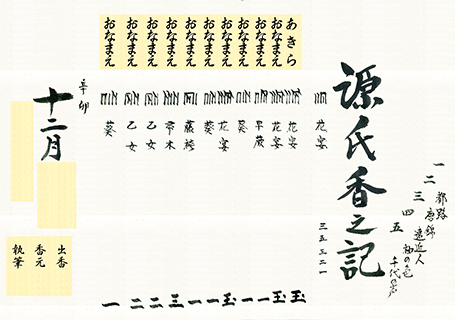 一 都路
二 唐錦
三 遠近人
四 袖の
五 千代の
源氏香之記
三五三二一
花宴
あきら 花宴 玉
おなまえ 花宴 玉
おなまえ 早蕨 一
おなまえ 葵 一
おなまえ 花宴 玉
おなまえ 葵 一
おなまえ 藤袴 一
おなまえ 帚木 三
おなまえ 乙女 二
おなまえ 乙女 二
おなまえ 葵 一
辛卯
十二月
出香
香元
執筆